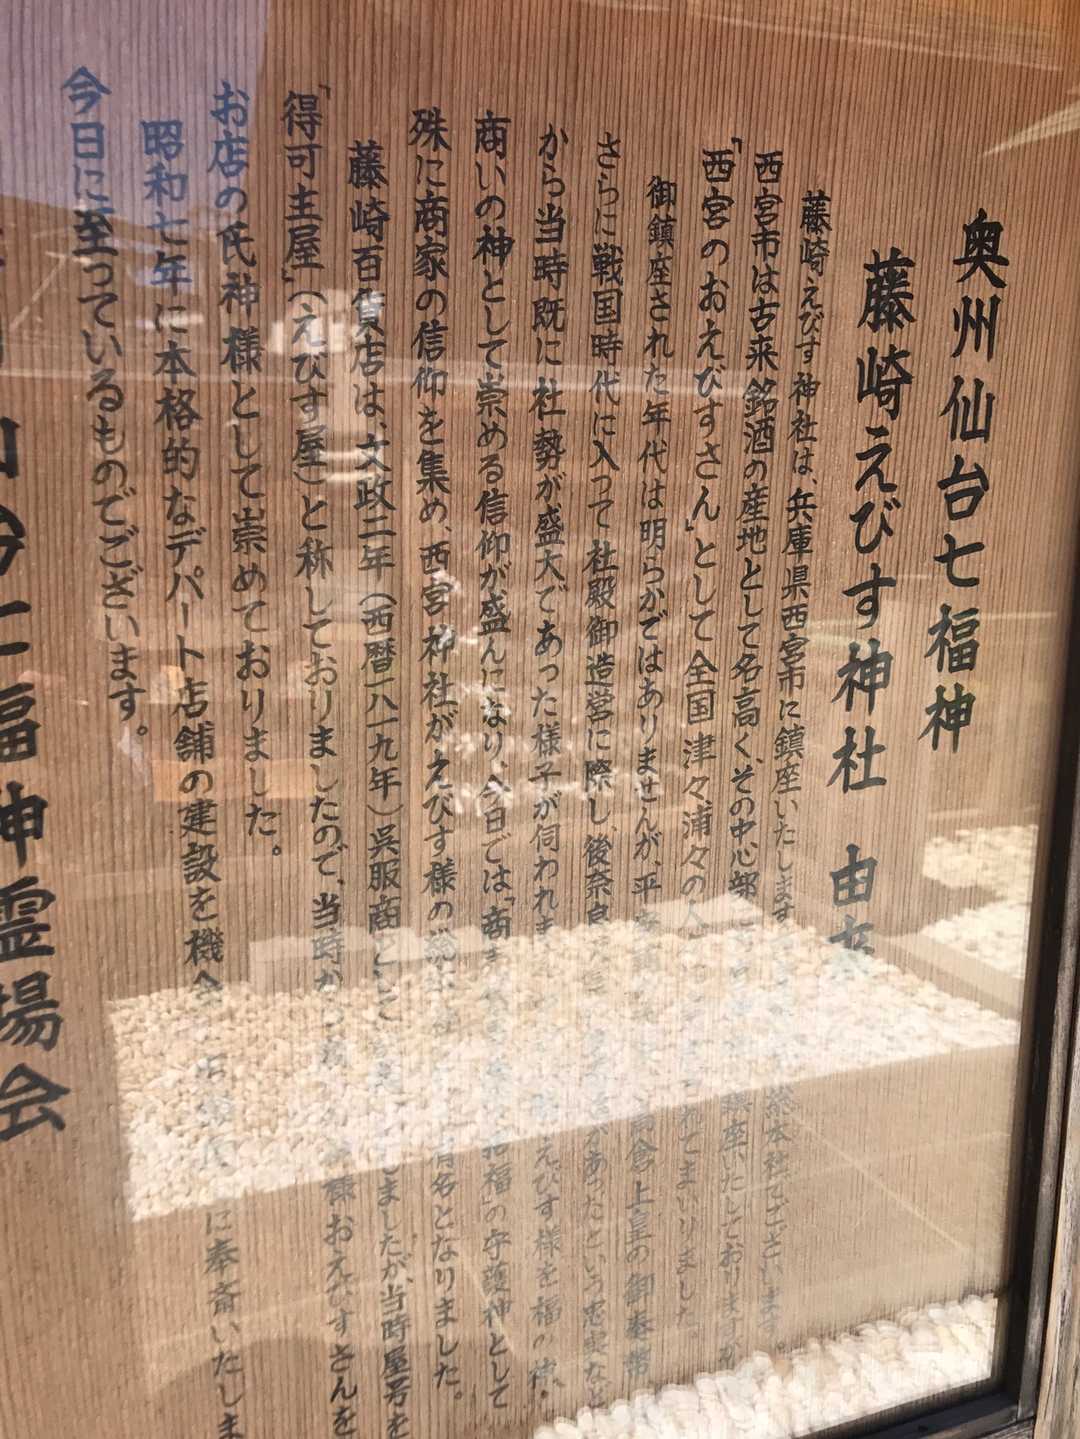 奥州仙台七福神
藤崎えびす神社 由来
藤崎えびす神社は、兵庫県西宮市に鎮座いたします 総本社でございます。
西宮市は古来銘酒の産地として名高く、その中心部に 鎮座いたしておりますが
「西宮のおえびすさん」として全国津々浦々の人 れてまいりました。
御鎮座された年代は明らかではありませんが、平安 高倉上皇の御奉幣
さらに戦国時代に入って社殿御造営に際し、後奈良天皇 があったという忠実など
から当時既に社勢が盛大であった様子が伺われま えびす様を福の神・
商いの神として崇める信仰が盛んになり、今日では「商 招福」の守護神として
殊に商家の信仰を集め、西宮神社がえびす様の総本社 有名となりました。
藤崎百貨店は、文政二年(西暦一八一九年)呉服商として しましたが、当時屋号を
「得可主屋」(えびす屋)と称しておりましたので、当時か 様おえびすさんを
お店の氏神様として崇めておりました。
昭和七年に本格的なデパート店舗の建設を機会 に奉斎いたしま
今日に至っているものでございます。
七福神霊場会